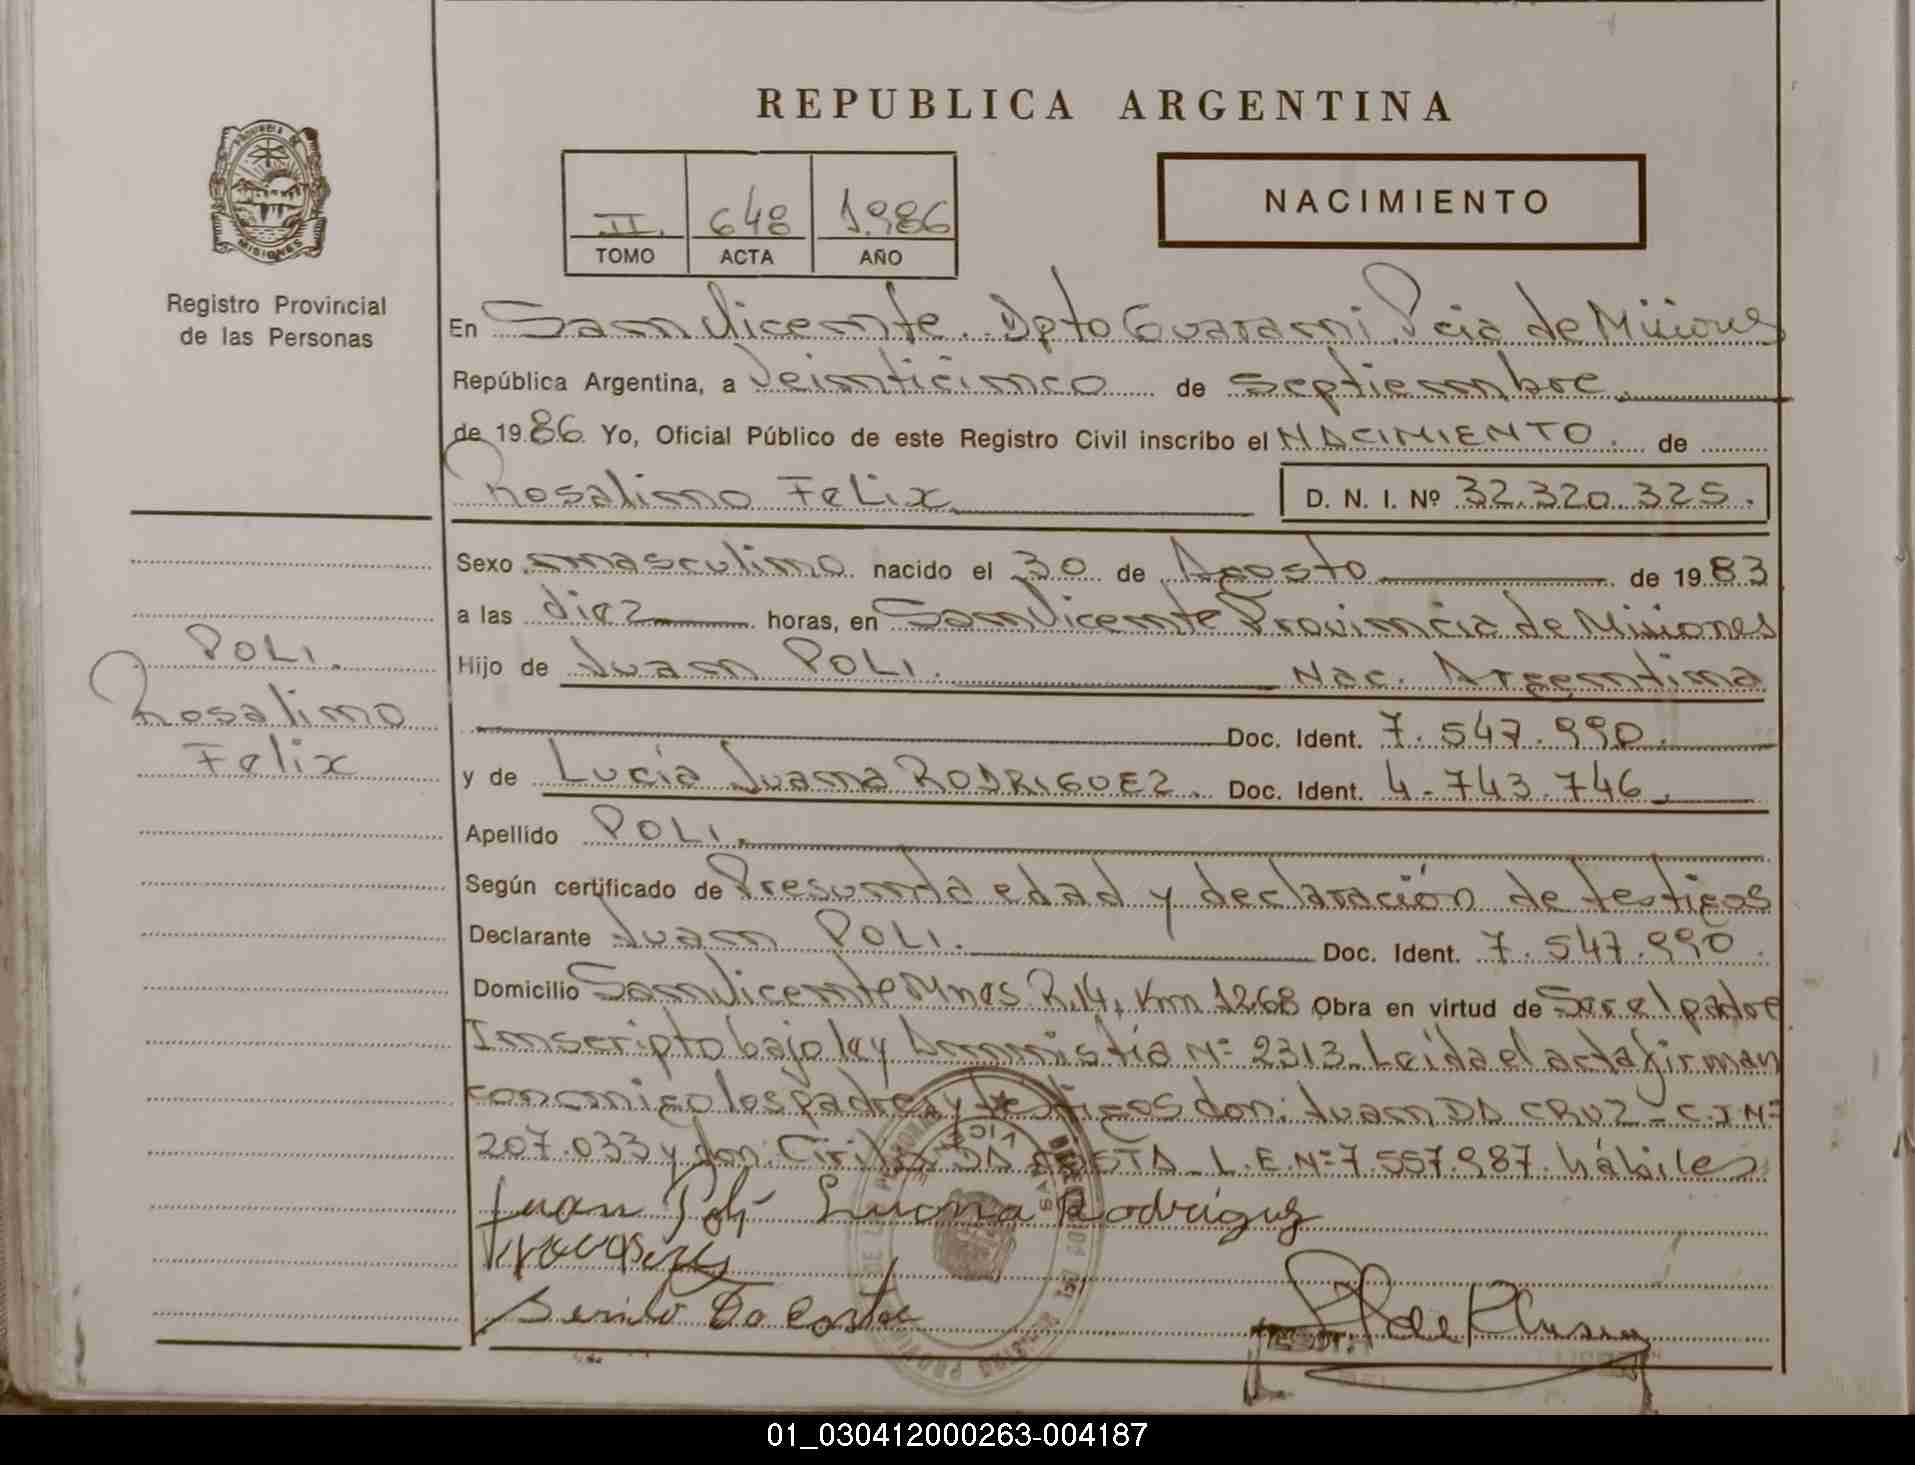 REPUBLICA ARGENTINA
PROVINCIA DE
MISIONES
Registro Provincial
de las Personas
II. 648 1.986
TOMO ACTA AÑO
NACIMIENTO
En San Vicente. Dpto Guarani Pcia de Misiones
República Argentina, a Veinticinco de Septiembre
de 1986 Yo, Oficial Público de este Registro Civil inscribo el NACIMIENTO. de
Rosalino Felix D. N. I. Nº 32.320.325.
Sexo masculino nacido el 30 de Agosto de 1983
a las diez horas, en San Vicente Provincia de Misiones
Hijo de Juan POLI. Nac. Argentina
Doc. Ident. 7.547.990.
y de Lucía Juana RODRIGUEZ. Doc. Ident. 4.743.746.
Apellido POLI.
Según certificado de Presunta edad y declaración de testigos
Declarante Juan POLI. Doc. Ident. 7.547.990.
Domicilio San Vicente Mnes R.14, Km 1268 Obra en virtud de Ser el padre
Inscripto bajo ley Amnistía Nº 2313. Leída el acta firman
conmigo los padres y testigos don: Juan DA CRUZ - C.I Nº
207.033 y don: Cirilo DA COSTA - L.E. Nº 7.557.987. hábiles
POLI.
Rosalino
Felix
Juan Poli Rodrigues
Da Costa
01_030412000263-004187